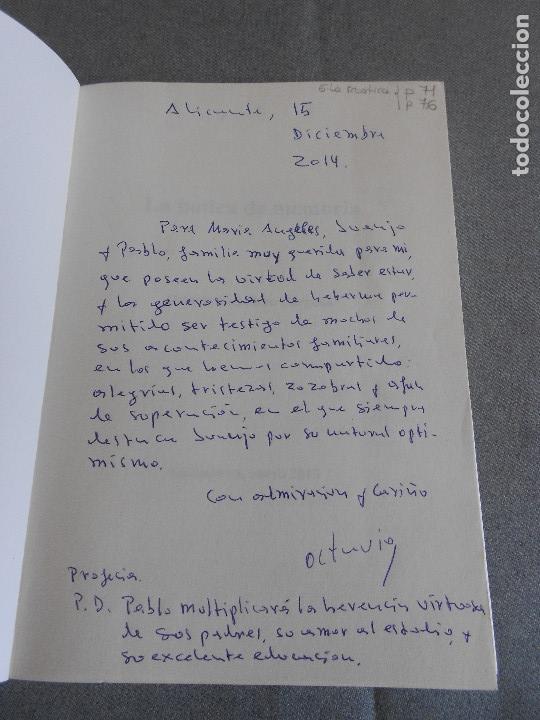 p 71
p 76
Alicante, 15
Diciembre
2014.
Para Maria Angeles, Juanjo
y Pablo, familia muy querida para mi,
que poseen la virtud de saber estar,
y la generosidad de haberme per-
mitido ser testigo de muchos de
sus acontecimientos familiares,
en los que hemos compartido:
alegrias, tristezas, zozobras y afan
de superación, en el que siempre
destaca Juanjo por su natural opti-
mismo.
Con admiracion y Cariño
Octavio
Profecia.
P.D. Pablo multiplicará la herencia virtuosa
de sus padres, su amor al estudio, y
su excelente educacion.
todocoleccion